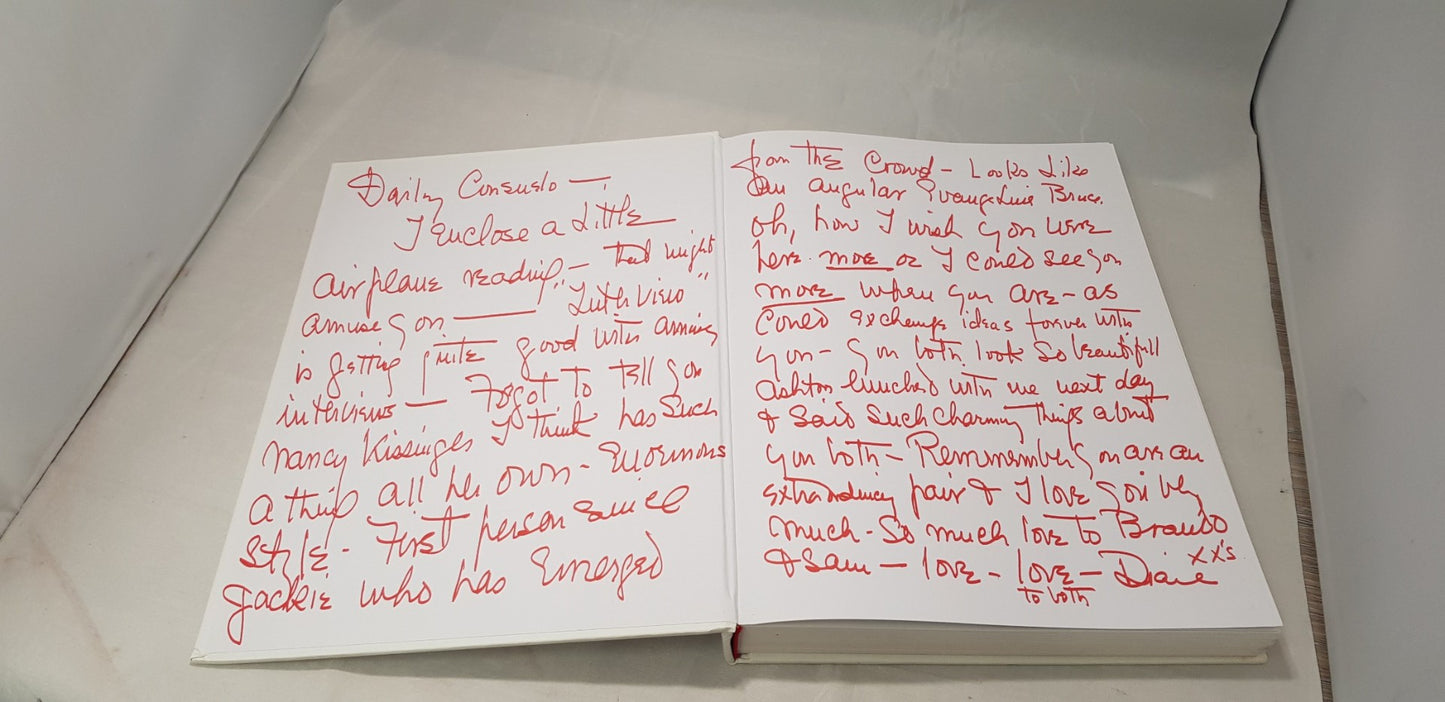 Darling Consuelo —
I enclose a little
airplane reading — that might
amuse you —— "Interview"
is getting quite good with amusing
interviews — Forgot to tell you
Nancy Kissinger I think has such
a thing all her own - Enormous
style - First person since
Jackie who has Emerged
from the Crowd - Looks like
an angular Evangeline Bruce.
oh, how I wish you were
here more or I could see you
more when you are - as
could exchange ideas forever with
you - you both look so beautifull
Ashton lunched with me next day
& said such charming things about
you both - Remmember you are an
extraordinary pair & I love you very
much - So much love to Brando
& Sam — love - love - Diane xx's
to both